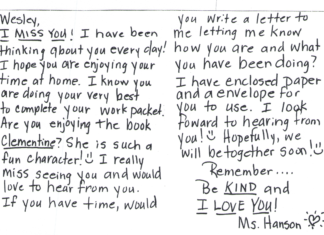 Wesley,
I MISS YOU! I have been
thinking about you every day!
I hope you are enjoying your
time at home. I know you
are doing your very best
to complete your work packet.
Are you enjoying the book
Clementine? She is such a
fun character! I really
miss seeing you and would
love to hear from you.
If you have time, would
you write a letter to
me letting me know
how you are and what
you have been doing?
I have enclosed paper
and a envelope for
you to use. I look
foward to hearing from
you! Hopefully, we
will be together soon!
Remember....
Be KIND and
I LOVE YOU!
Ms. Hanson